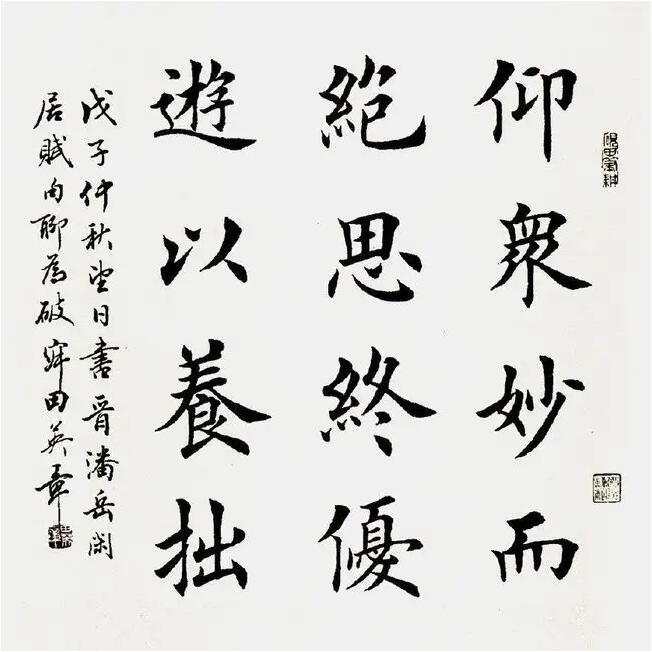 仰衆妙而
絶思終優
遊以養拙
戊子仲秋望日書晋潘岳閑
居賦句聊為破寂田英章